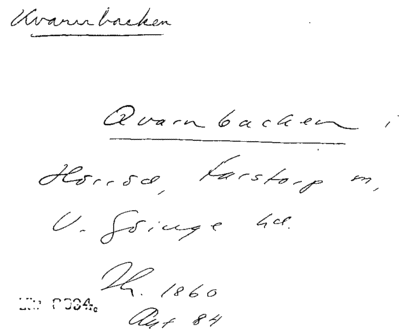 Kvarnbacken
Qvarnbacken i
Hörröd, Farstorp m,
V. Göinge hd.
Th. 1860
Avt 84